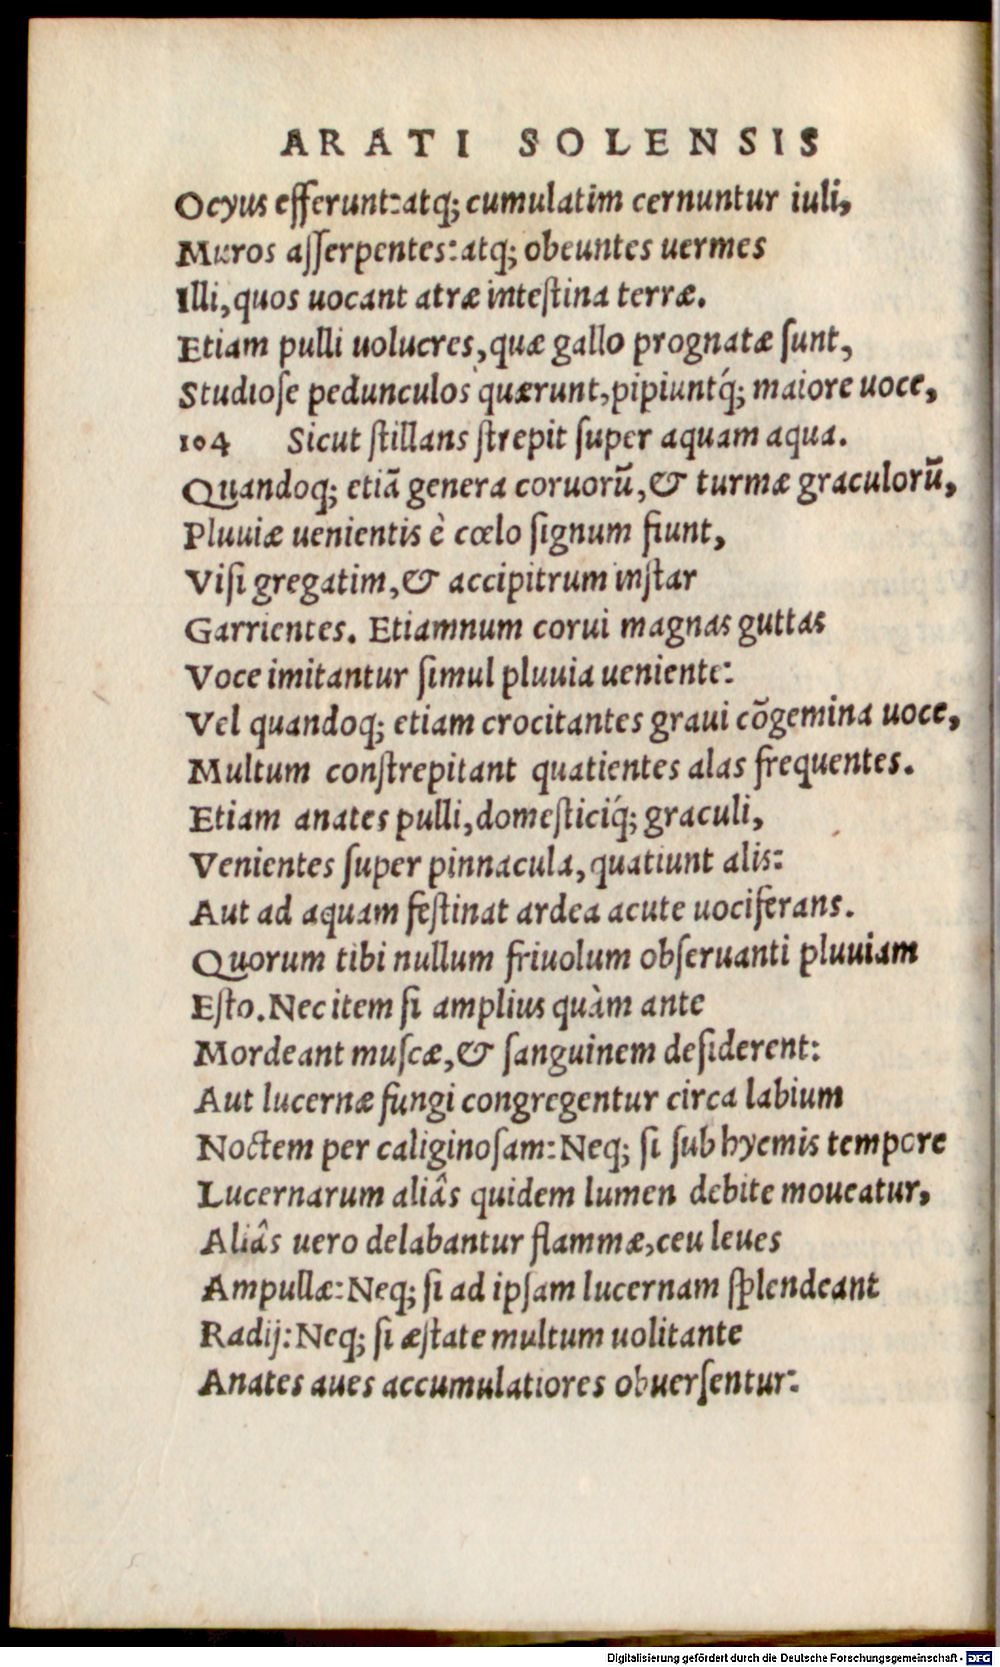 ARATI SOLENSIS
Ocyus efferunt:atq; cumulatim cernuntur iuli,
Muros aſſerpentes:atq; obeuntes uermes
Illi,quos uocant atræ inteſtina terræ.
Etiam pulli uolucres,quæ gallo prognatæ ſunt,
Studioſe pedunculos quærunt,pipiuntq́; maiore uoce,
104 Sicut ſtillans ſtrepit ſuper aquam aqua.
Quandoq; etiã genera coruorũ,& turmæ graculorũ,
Pluuiæ uenientis è cœlo ſignum fiunt,
Viſi gregatim,& accipitrum inſtar
Garrientes. Etiamnum corui magnas guttas
Voce imitantur ſimul pluuia ueniente:
Vel quandoq; etiam crocitantes graui cõgemina uoce,
Multum conſtrepitant quatientes alas frequentes.
Etiam anates pulli,domeſticiq́; graculi,
Venientes ſuper pinnacula,quatiunt alis:
Aut ad aquam feſtinat ardea acute uociferans.
Quorum tibi nullum friuolum obſeruanti pluuiam
Eſto.Nec item ſi amplius quàm ante
Mordeant muſcæ,& ſanguinem deſiderent:
Aut lucernæ fungi congregentur circa labium
Noctem per caliginoſam:Neq; ſi ſub hyemis tempore
Lucernarum aliâs quidem lumen debite moueatur,
Aliâs uero delabantur flammæ,ceu leues
Ampullæ:Neq; ſi ad ipſam lucernam ſplendeant
Radij:Neq; ſi æſtate multum uolitante
Anates aues accumulatiores obuerſentur:
Digitalisierung gefördert durch die Deutsche Forschungsgemeinschaft - DFG